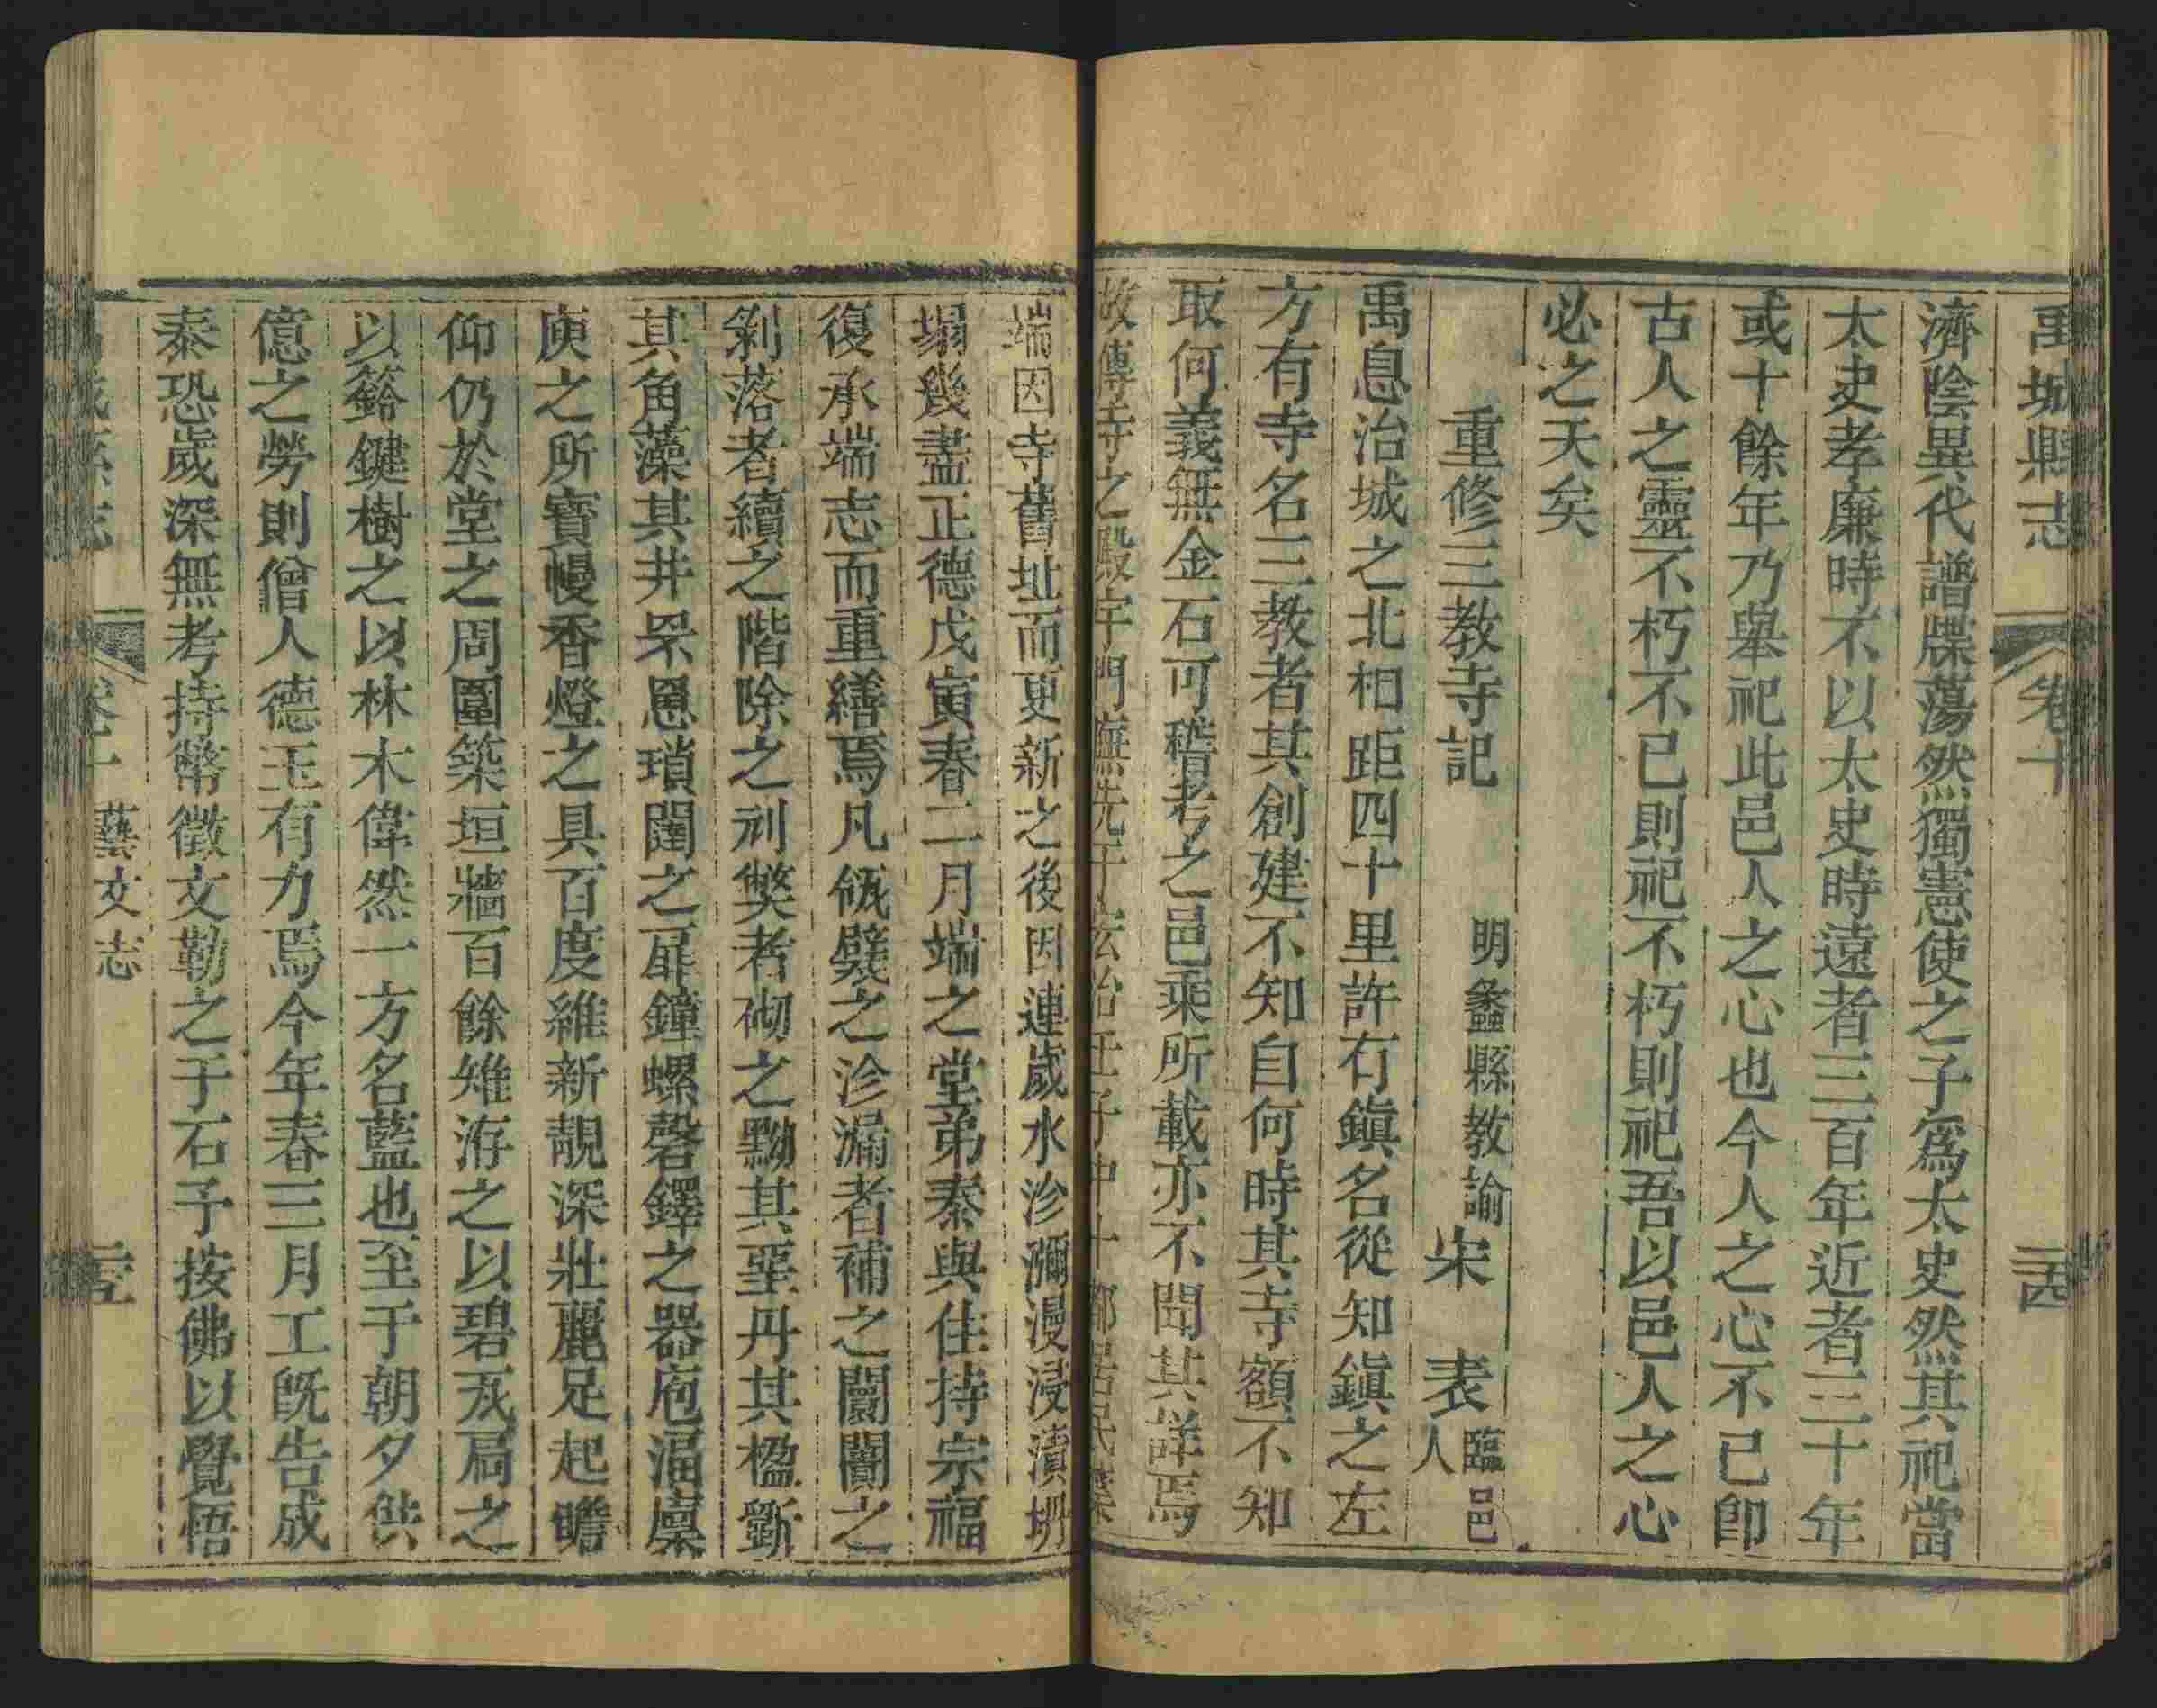 禹城縣志 卷十 二十四
濟陰異代譜牒蕩然獨憲使之子爲太史然其祀當
太史孝廉時不以太史時遠者三百年近者三十年
或十餘年乃舉祀此邑人之心也今人之心不已卽
古人之靈不朽不已則祀不朽則祀吾以邑人之心
必之天矣
重修三教寺記 明蠡縣教諭宋表臨邑人
禹息治城之北相距四十里許有鎭名從知鎭之左
方有寺名三教者其創建不知自何時其寺額不知
取何義無金石可稽考之邑乘所載亦不聞其詳焉
故傳寺之殿宇門廡先于宏治壬子中十都居民葉
端因寺舊址而更新之後因連歲水沴瀰漫浸漬坍
塌幾盡正德戊寅春二月端之堂弟秦與住持宗福
復承端志而重繕焉凡瓴甓之沴漏者補之闤闠之
剝落者續之階除之刓獘者砌之黝其堊丹其楹斵
其角藻其井罘罳瑣闥之扉鐘螺磬鐸之器庖湢廩
庾之所寶幔香燈之具百度維新靚深壯麗足起瞻
仰仍於堂之周圍築垣牆百餘雉洊之以碧瓦扃之
以鈴鍵樹之以林木偉然一方名藍也至于朝夕供
億之勞則僧人德玉有力焉今年春三月工旣告成
泰恐歲深無考持幣徵文勒之于石予按佛以覺悟
卷十 藝文志 二十五